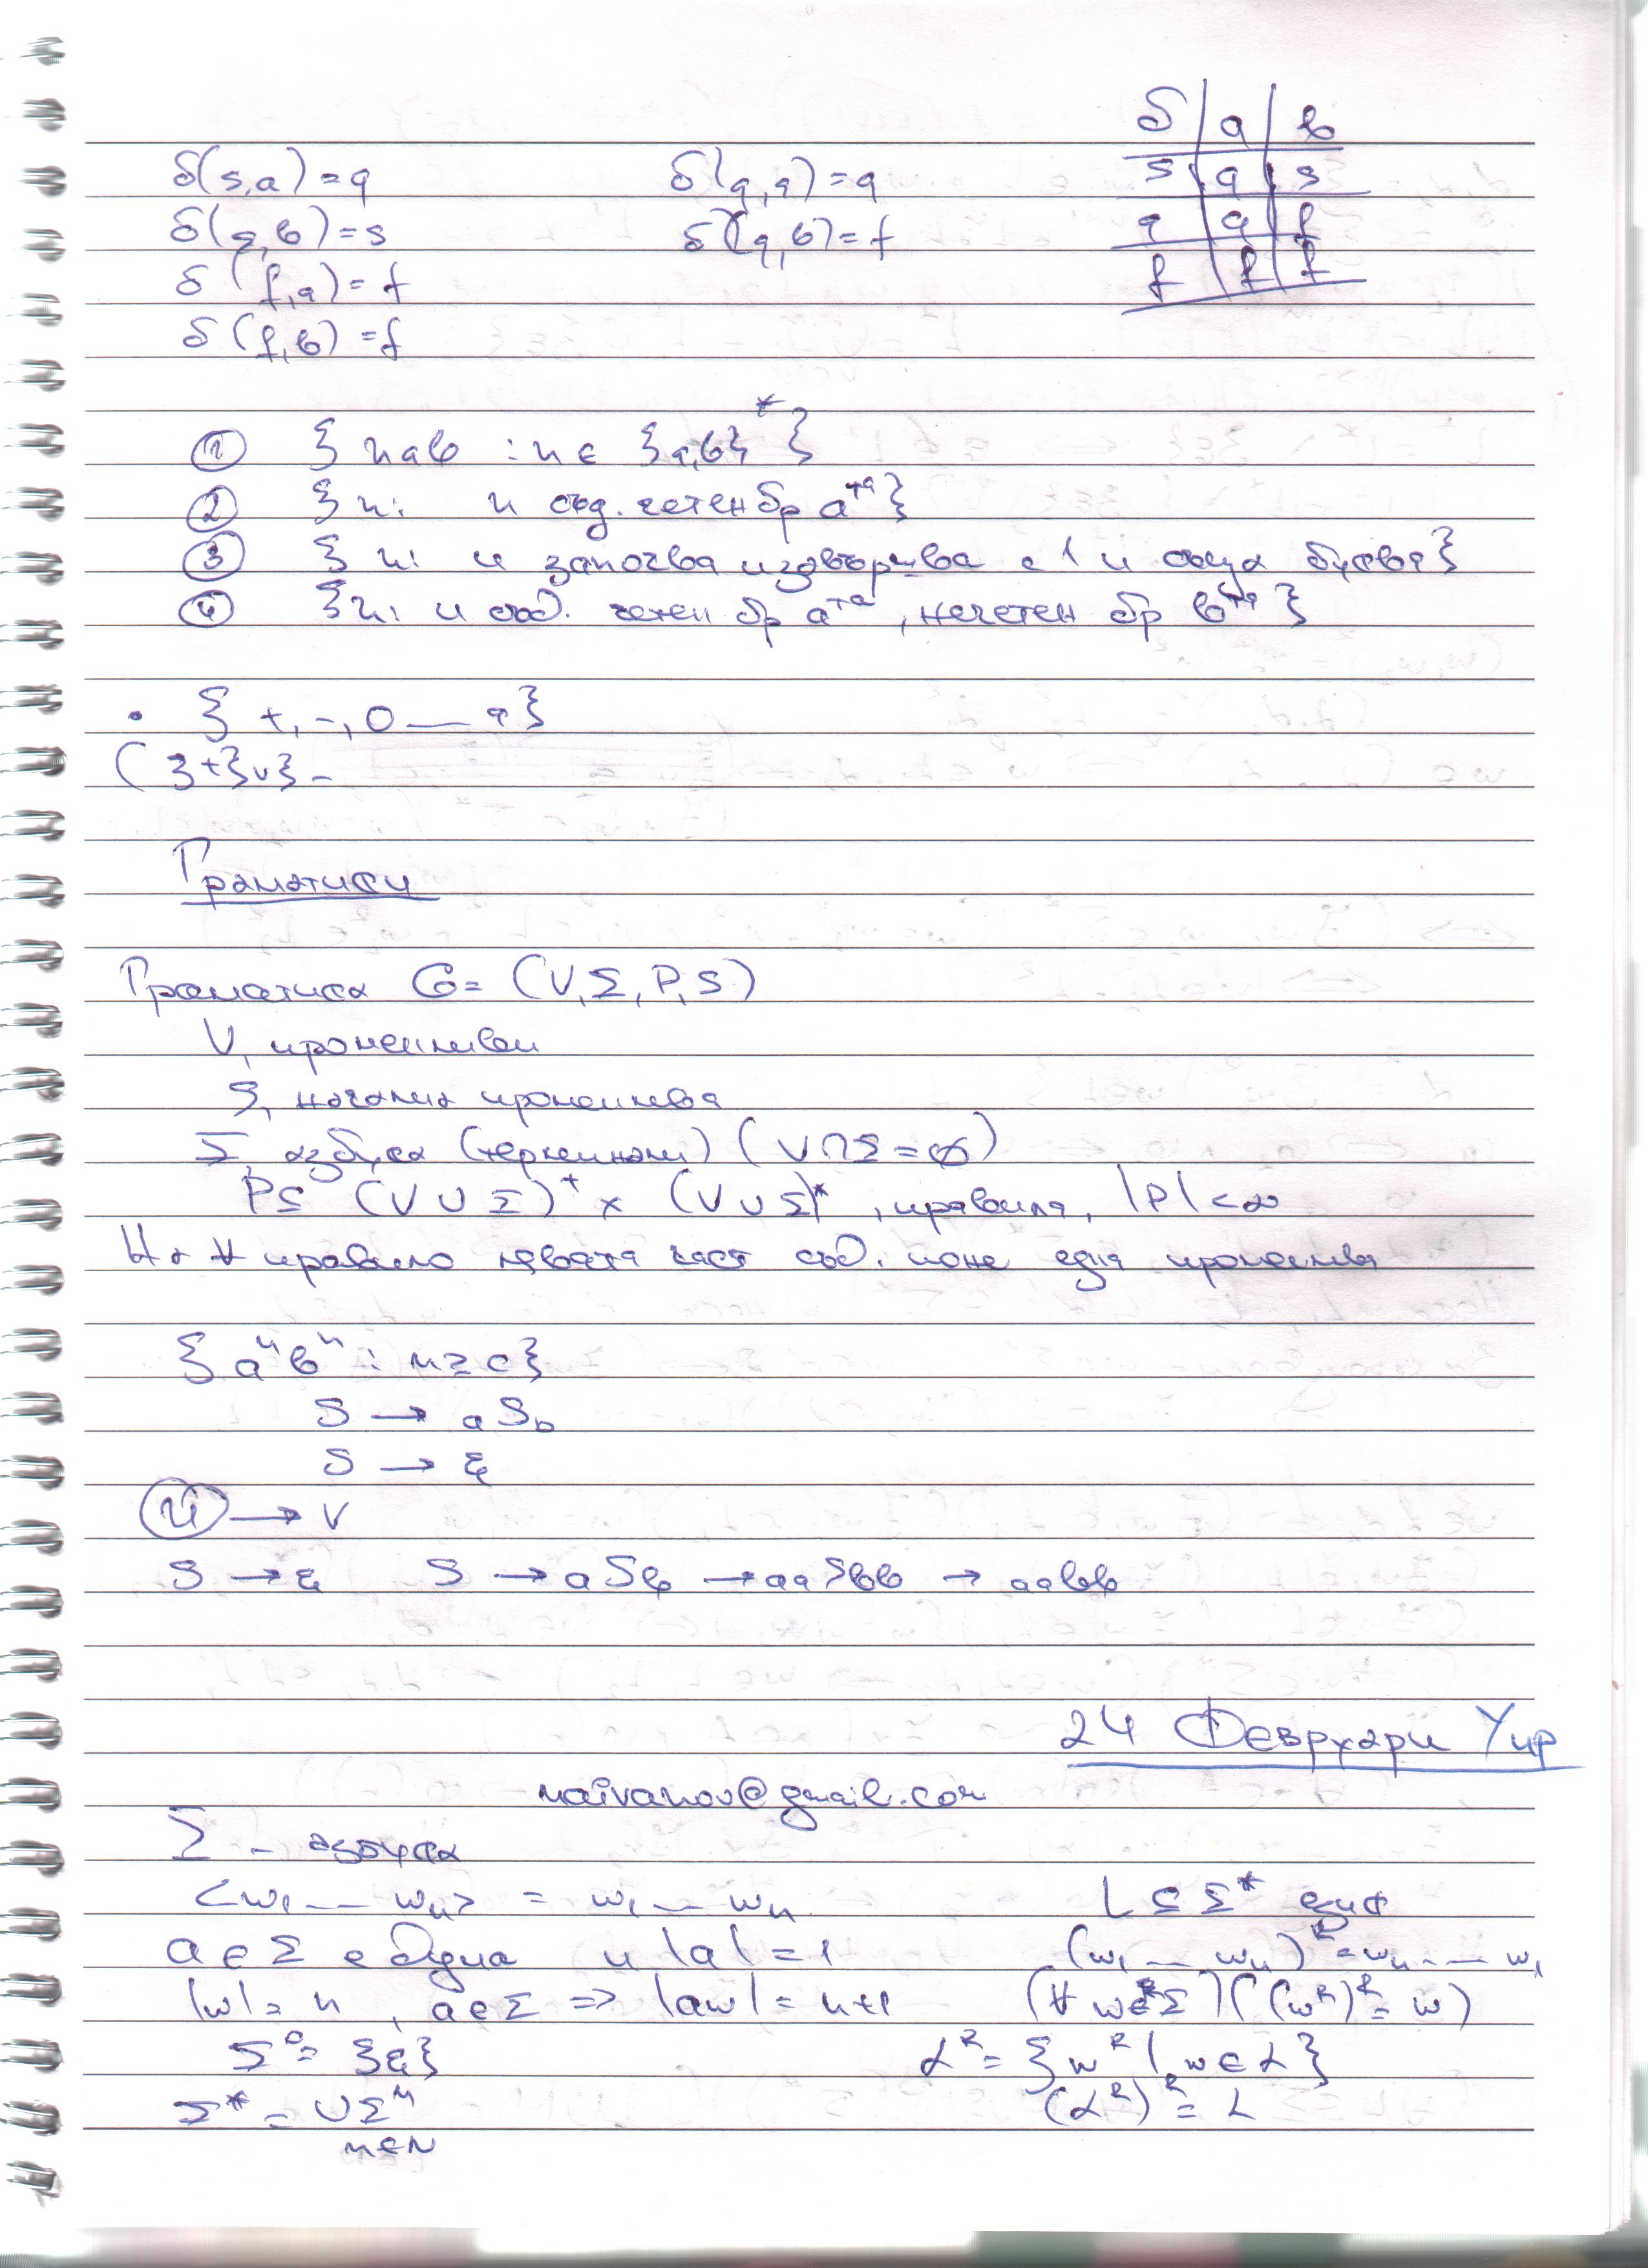 δ(s,a) = q δ(q,a) = q
δ(q,b) = s δ(q,b) = f
δ(f,a) = f
δ(f,b) = f
δ | a | b
s | q | s
q | q | f
f | f | f
① { uab : u ∈ {a,b}* }
② { u: u съд. четен бр a^та }
③ { u: u започва и завършва с 1 и съща буква }
④ { u: u съд. четен бр a^та, нечетен бр b^та }
• { +, -, 0 — 9 }
( {+} ∪ } -
Граматики
Граматика G = (V, Σ, P, S)
V, променливи
S, начална променлива
Σ азбука (терминали) (V ∩ Σ = ∅)
P ⊆ (V ∪ Σ)⁺ × (V ∪ Σ)*, правила, |P| < ∞
На ∀ правило лявата част съд. поне една променлива
{ aⁿbⁿ : n ≥ 0 }
S → aSb
S → ε
(u) → v
S → ε S → aSb → aaSbb → aabb
24 Февруари Упр
naivanov@gmail.com
Σ - азбука
<w₁ … wₙ> = w₁ … wₙ L ⊆ Σ* език
a ∈ Σ е дума и |a| = 1 (w₁ … wₙ)ᴿ = wₙ … w₁
|w| = n, a ∈ Σ => |aw| = n+1 (∀ w ∈ Σ*)((wᴿ)ᴿ = w)
Σ⁰ = {ε} Lᴿ = { wᴿ | w ∈ L }
Σ* = ∪Σⁿ (Lᴿ)ᴿ = L
n∈N